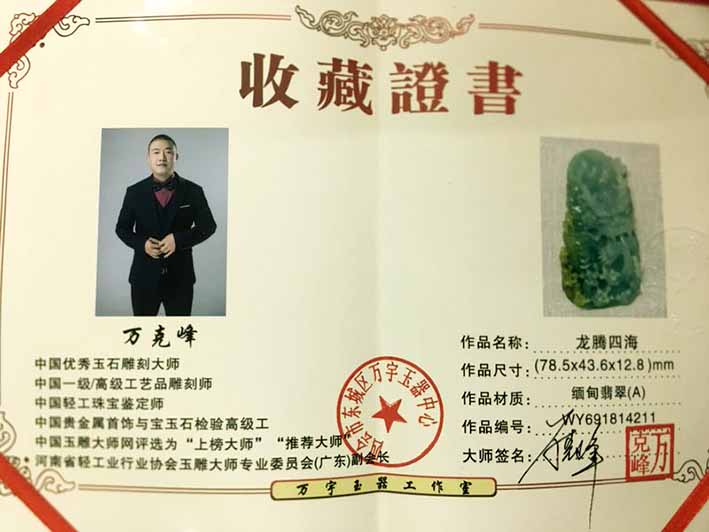 收藏證書
万克峰
中国优秀玉石雕刻大师
中国一级/高级工艺品雕刻师
中国轻工珠宝鉴定师
中国贵金属首饰与宝玉石检验高级工
中国玉雕大师网评选为“上榜大师”“推荐大师”
河南省轻工业行业协会玉雕大师专业委员会(广东)副会长
四会市东城区万宇玉器中心
作品名称: 龙腾四海
作品尺寸: (78.5x43.6x12.8)mm
作品材质: 缅甸翡翠(A)
作品编号: WY691814211
大师签名: 万克峰
万克峰
万宇玉器工作室